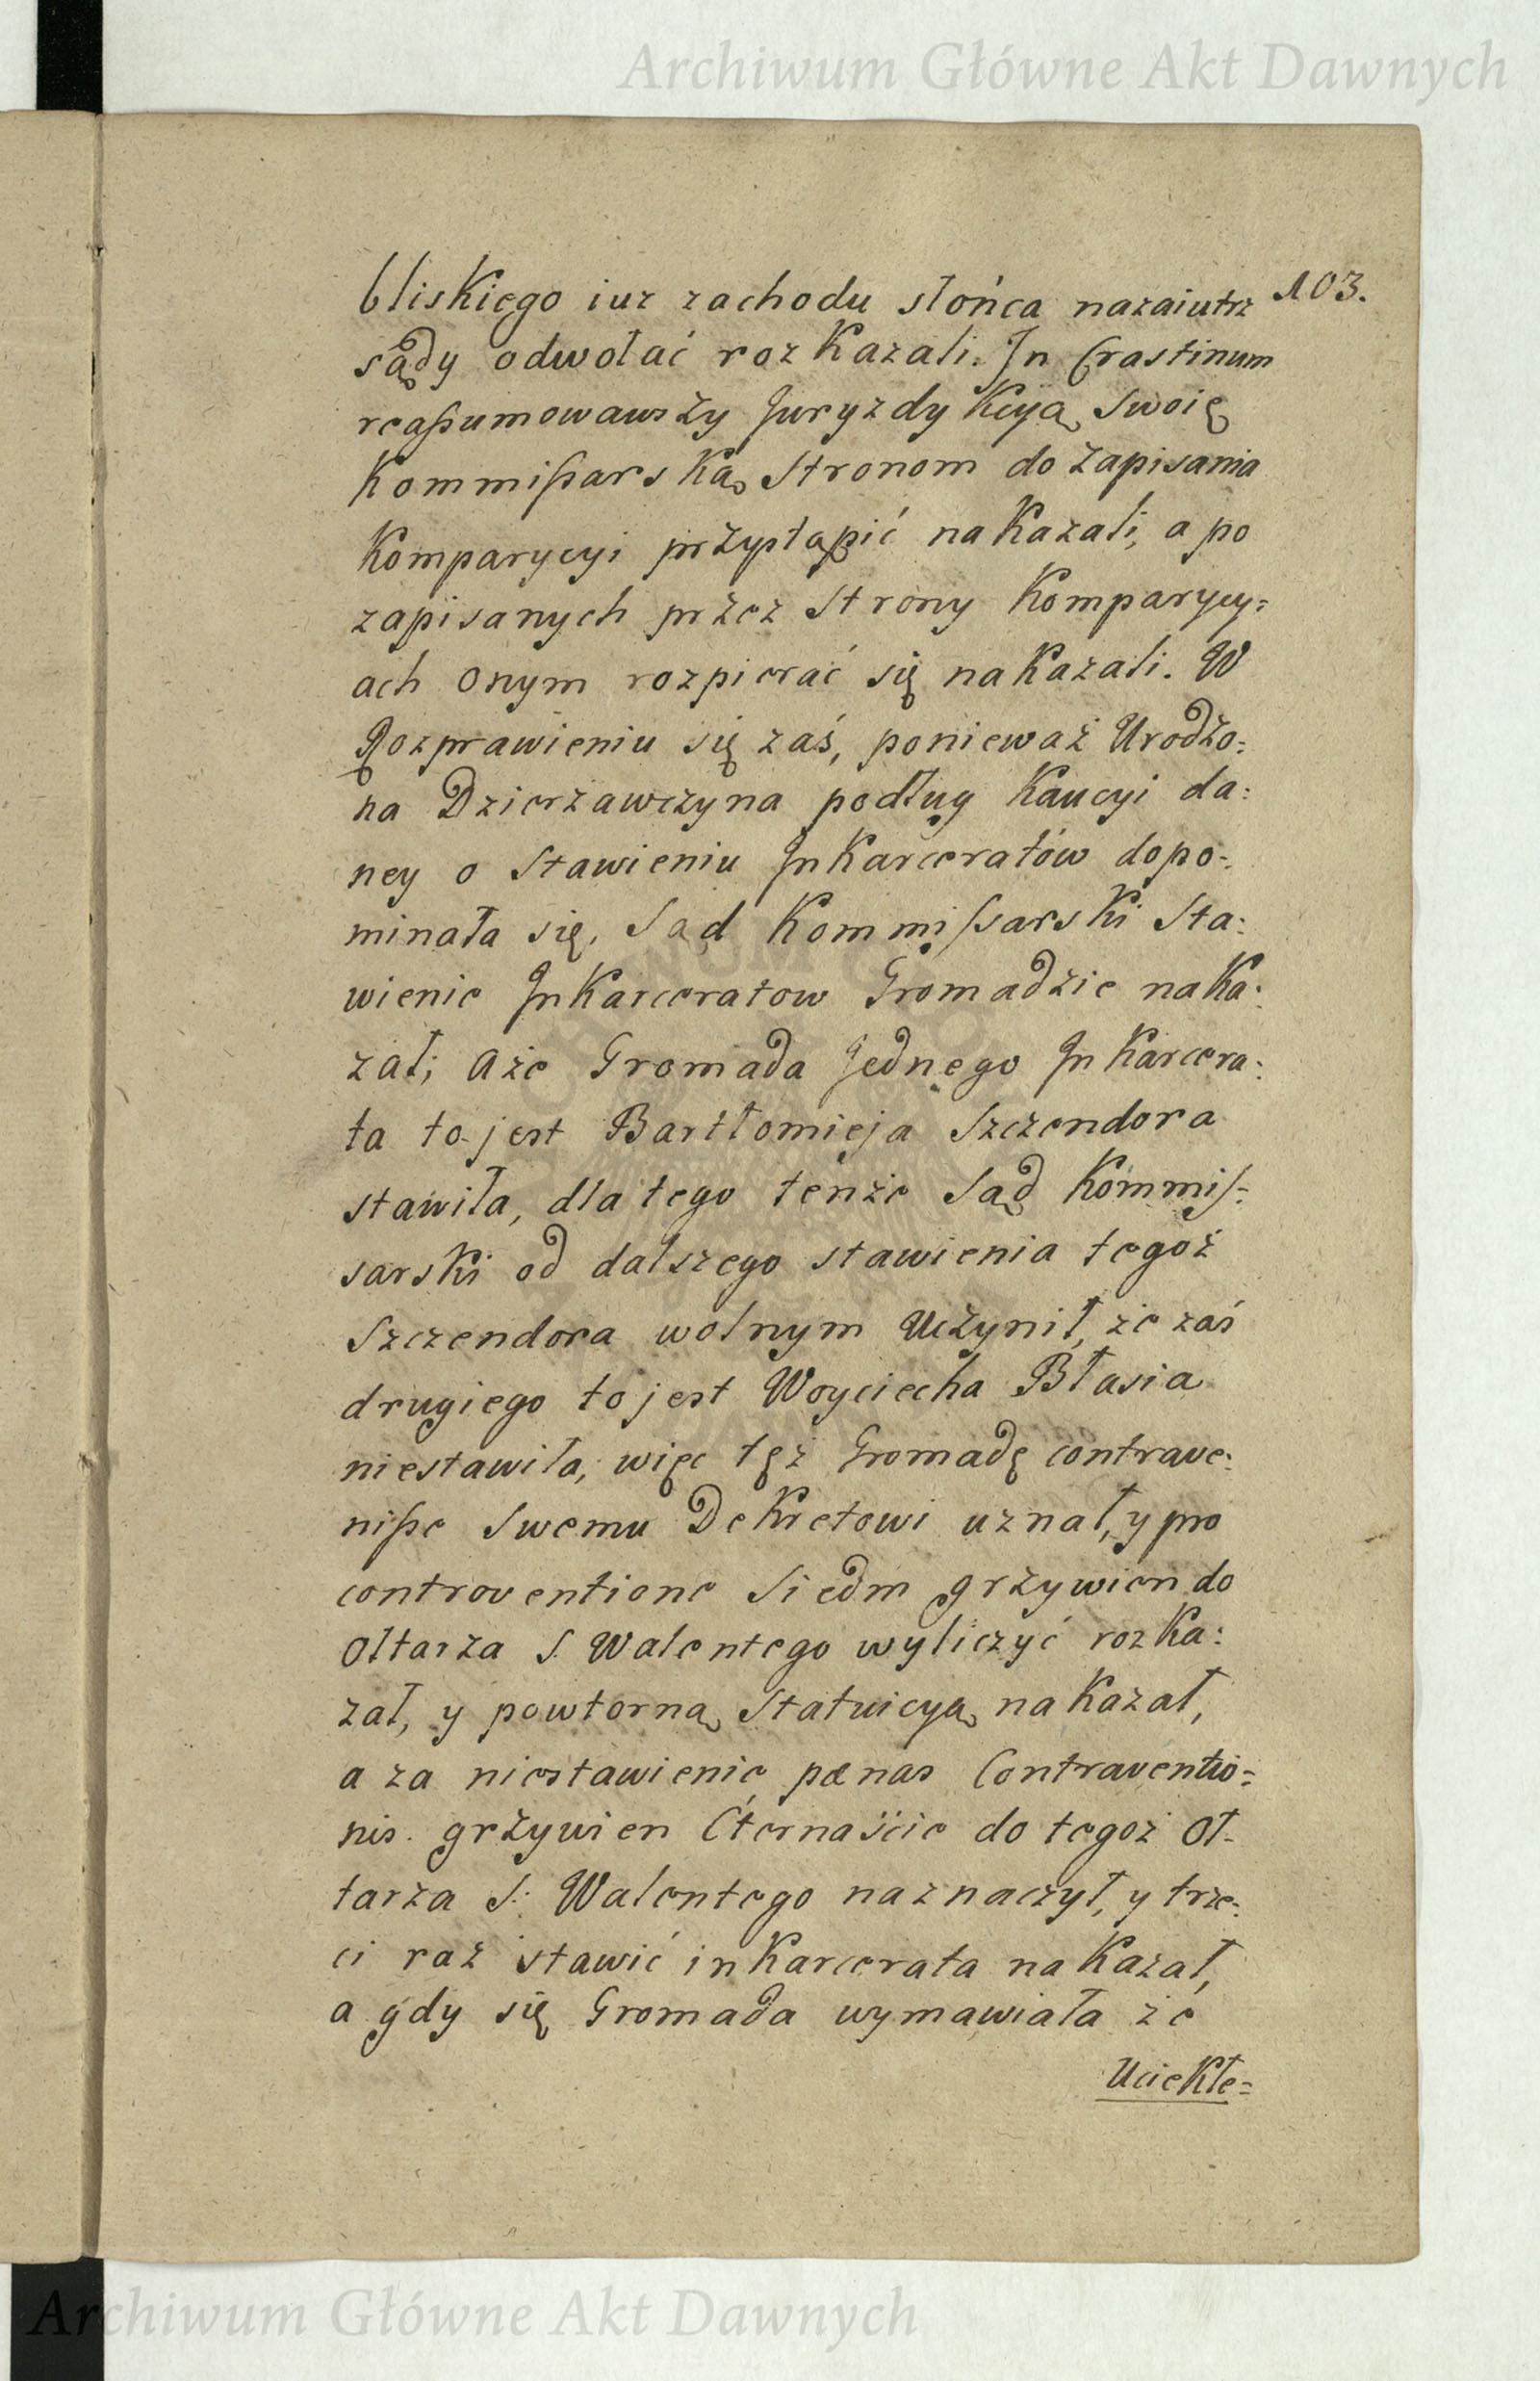 Archiwum Główne Akt Dawnych
103.
bliskiego iuz zachodu słońca nazaiutrz
sądy odwołać rozkazali. In Crastinum
reaßumowawszy Juryzdykcyą Swoię
Kommißarską Stronom do zapisania
Komparycyi przystąpić nakazali, a po
zapisanych przez Strony Komparycy=
ach onym rozpierać się nakazali. W
Rozprawieniu się zaś, ponieważ Urodzo=
na Dzierżawczyna podług Kaucyi da=
ney o Stawieniu Inkarceratów dopo=
minała się, Sąd Kommissarski Sta=
wienie Inkarceratow Gromadzie naka=
zał; aże Gromada Jednego Inkarcera=
ta to jest Bartłomieja Szczendora
stawiła, dla tego tenże Sąd Kommis=
sarski od dalszego stawienia tegoż
Szczendora wolnym Uczynił, że zaś
drugiego to jest Woyciecha Błasia
niestawiła, więc tęż Gromadę contrave=
niße Swemu Dekretowi uznał, y pro
controventione Siedm grzywien do
Ołtarza S. Walentego wyliczyć rozka=
zał, y powtorną Statuicyą nakazał,
a za niestawienie pænas Contraventio=
nis. grzywien Cternaście do tegoż Oł=
tarza S: Walentego naznaczył, y trze=
ci raz stawić inkarcerata nakazał,
a gdy się Gromada wymawiała że
Uciekłe=
Archiwum Główne Akt Dawnych